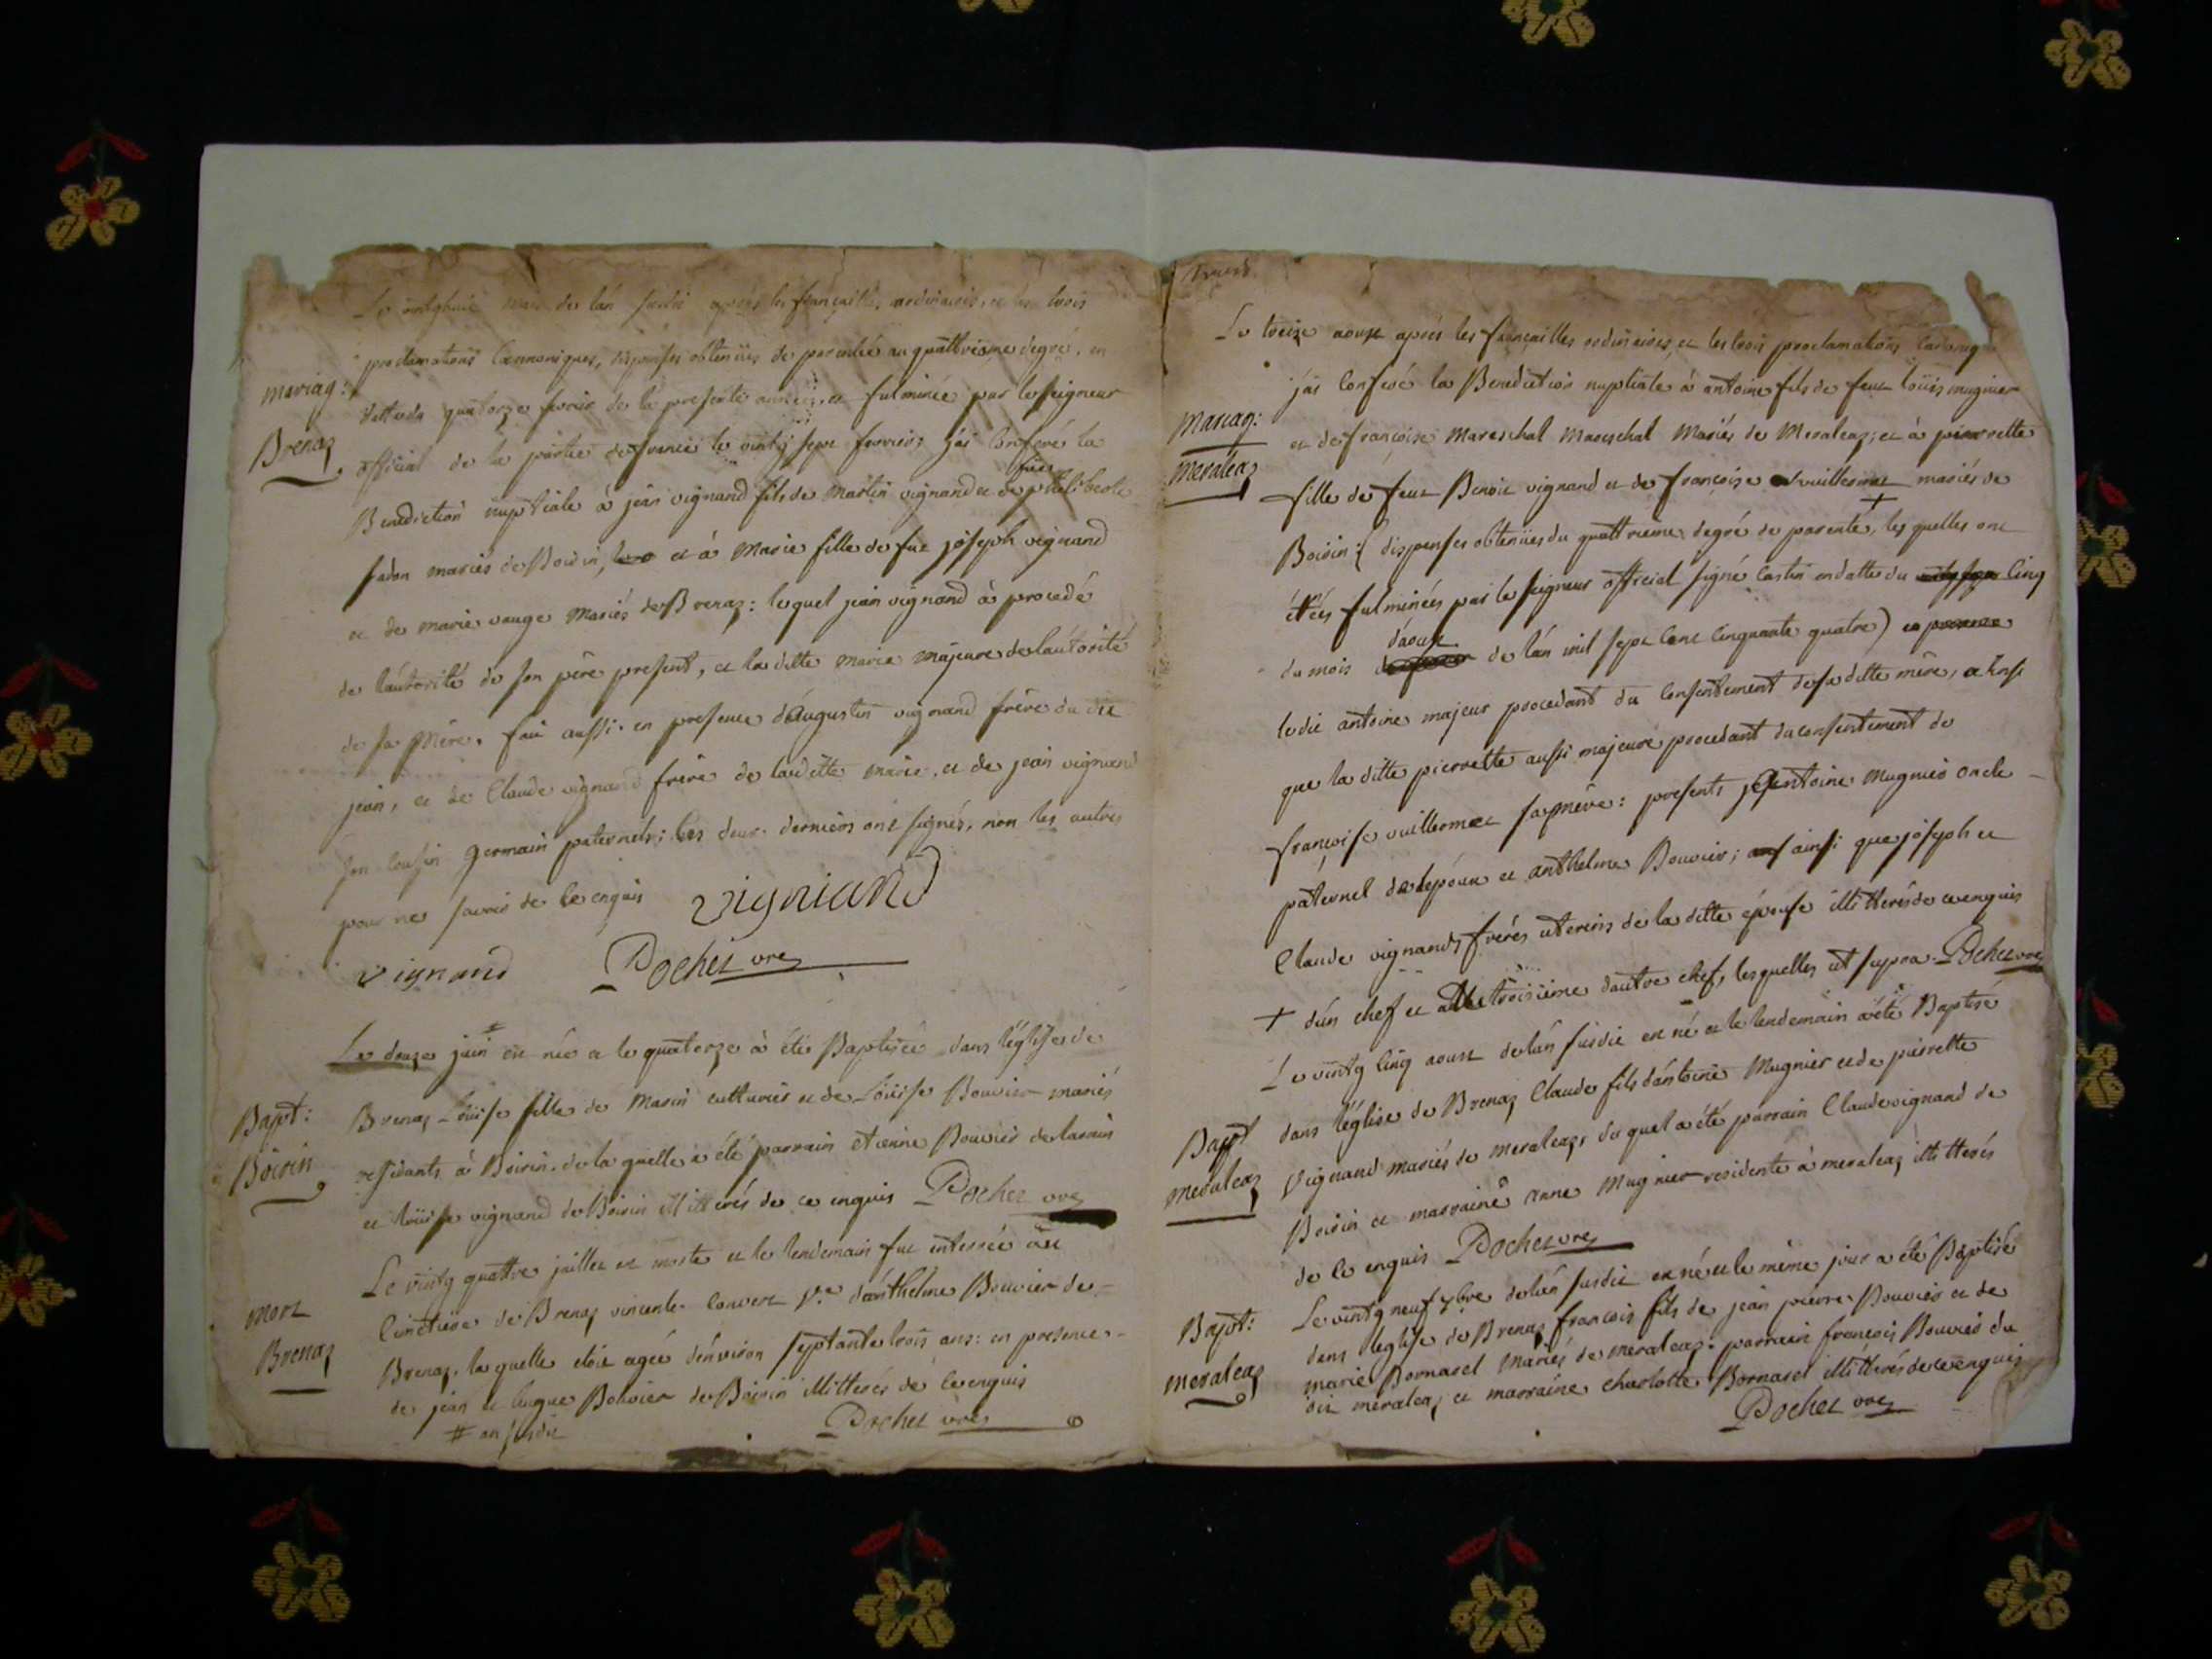 Le vingthuit mai de lán susdit après les fiançailles ordinaires, et les trois
proclamations Cannoniques, dispenses obtenües de parentée au quattrième degré, en
datte du quatorze fevrier de la presente année, et fulminée par le seigneur
official de la partie de france le vintg sept fevrier; j'ai Conferé la
Benediction nuptiale à jean vignand fils de Martin vignand et de philiberte
fadon mariés de Boirin, et à Marie fille de fut joseph vignand
et de marie vauge Mariés de Brenaz: lequel jean vignand à procedé
de lautorité de son père present, et la ditte Marie majeure de láutorité
de sa Mère. fait aussi en presence dAugustin vignand frère du dit
jean, et de Claude vignand frère de laditte Marie, et de jean vignand
son Cousin germain paternels; les deux derniers ont signés, non les autres
pour ne savoir de ce enquis vigniand
vignand Pochet vre
Mariag:
Brenaz
Le douze juin # est née et le quatorze à été Baptisée dans l'église de
Brenaz Loüise fille de Marin cutturier et de Loüise Bouvier mariés
residants à Boirin. de la quelle a été parrain etienne Bouvier de
et loüise vignand de Boirin illitterés de ce enquis Pochet vre
Bapt:
Boirin
Le vintg quattre juillet est morte et le lendemain fut enterrée au
Cimetiere de Brenaz vincente Convert ve dánthelme Bouvier de
Brenaz. la quelle etoit agée dénviron septante trois ans: en presence
de jean et Bouvier de Boirin illitterés de ce enquis
# an susdit Pochet vre
Mort
Brenaz
Le treize aoust après les fiançailles ordinaires et les trois proclamations
j'ai Conferé la Benediction nuptiale à antoine fils de feut loüis mugnier
et de françoise Mareschal Mareschal Mariés de Meraleaz; et à pierrette
fille de feut Benoit vignand et de françoise vuillermet mariés de
Boirin: ( dispenses obtenües du quattrième degré de parenté + les quelles ont
étées fulminées par le seigneur official signé en datte du cinq
du mois d'aoust de lán mil sept Cent Cinquante quatre)
ledit antoine majeur procedant du Consentement de sa ditte mère, ainsi
que la ditte pierrette aussi majeure procedant du consentement de
françoise vuillermet sa mère: presents antoine Mugnier oncle
paternel de lepoux et anthelme Bouvier; ainsi que joseph et
Claude vignands frères uterins de la ditte épouse illitterés de ce enquis
+ dún chef et troisième dautre chef, lesquelles ut supra. Pochet vre
Mariag:
Meraleaz
Le vintg Cinq aoust de lán susdit est né et le lendemain a été Baptisé
dans l'église de Brenaz Claude fils dántoine Mugnier et de pierrette
vignand mariés de meraleaz, du quel a été parrain Claude vignand de
Boirin et marraine anne Mugnier residente à meraleaz illitterés
de ce enquis Pochet vre
Bapt
Meraleaz
Le vintg neuf 7bre de lán susdit est né et le même jour a été Baptisé
dans leglise de Brenaz françois fils de jean pierre Bouvier et de
marie Bornarel Mariés de meraleaz. parrain françois Bouvier du
dit meraleaz et marraine charlotte Bornarel illitterés de ce enquis
Pochet vre
Bapt:
meraleaz